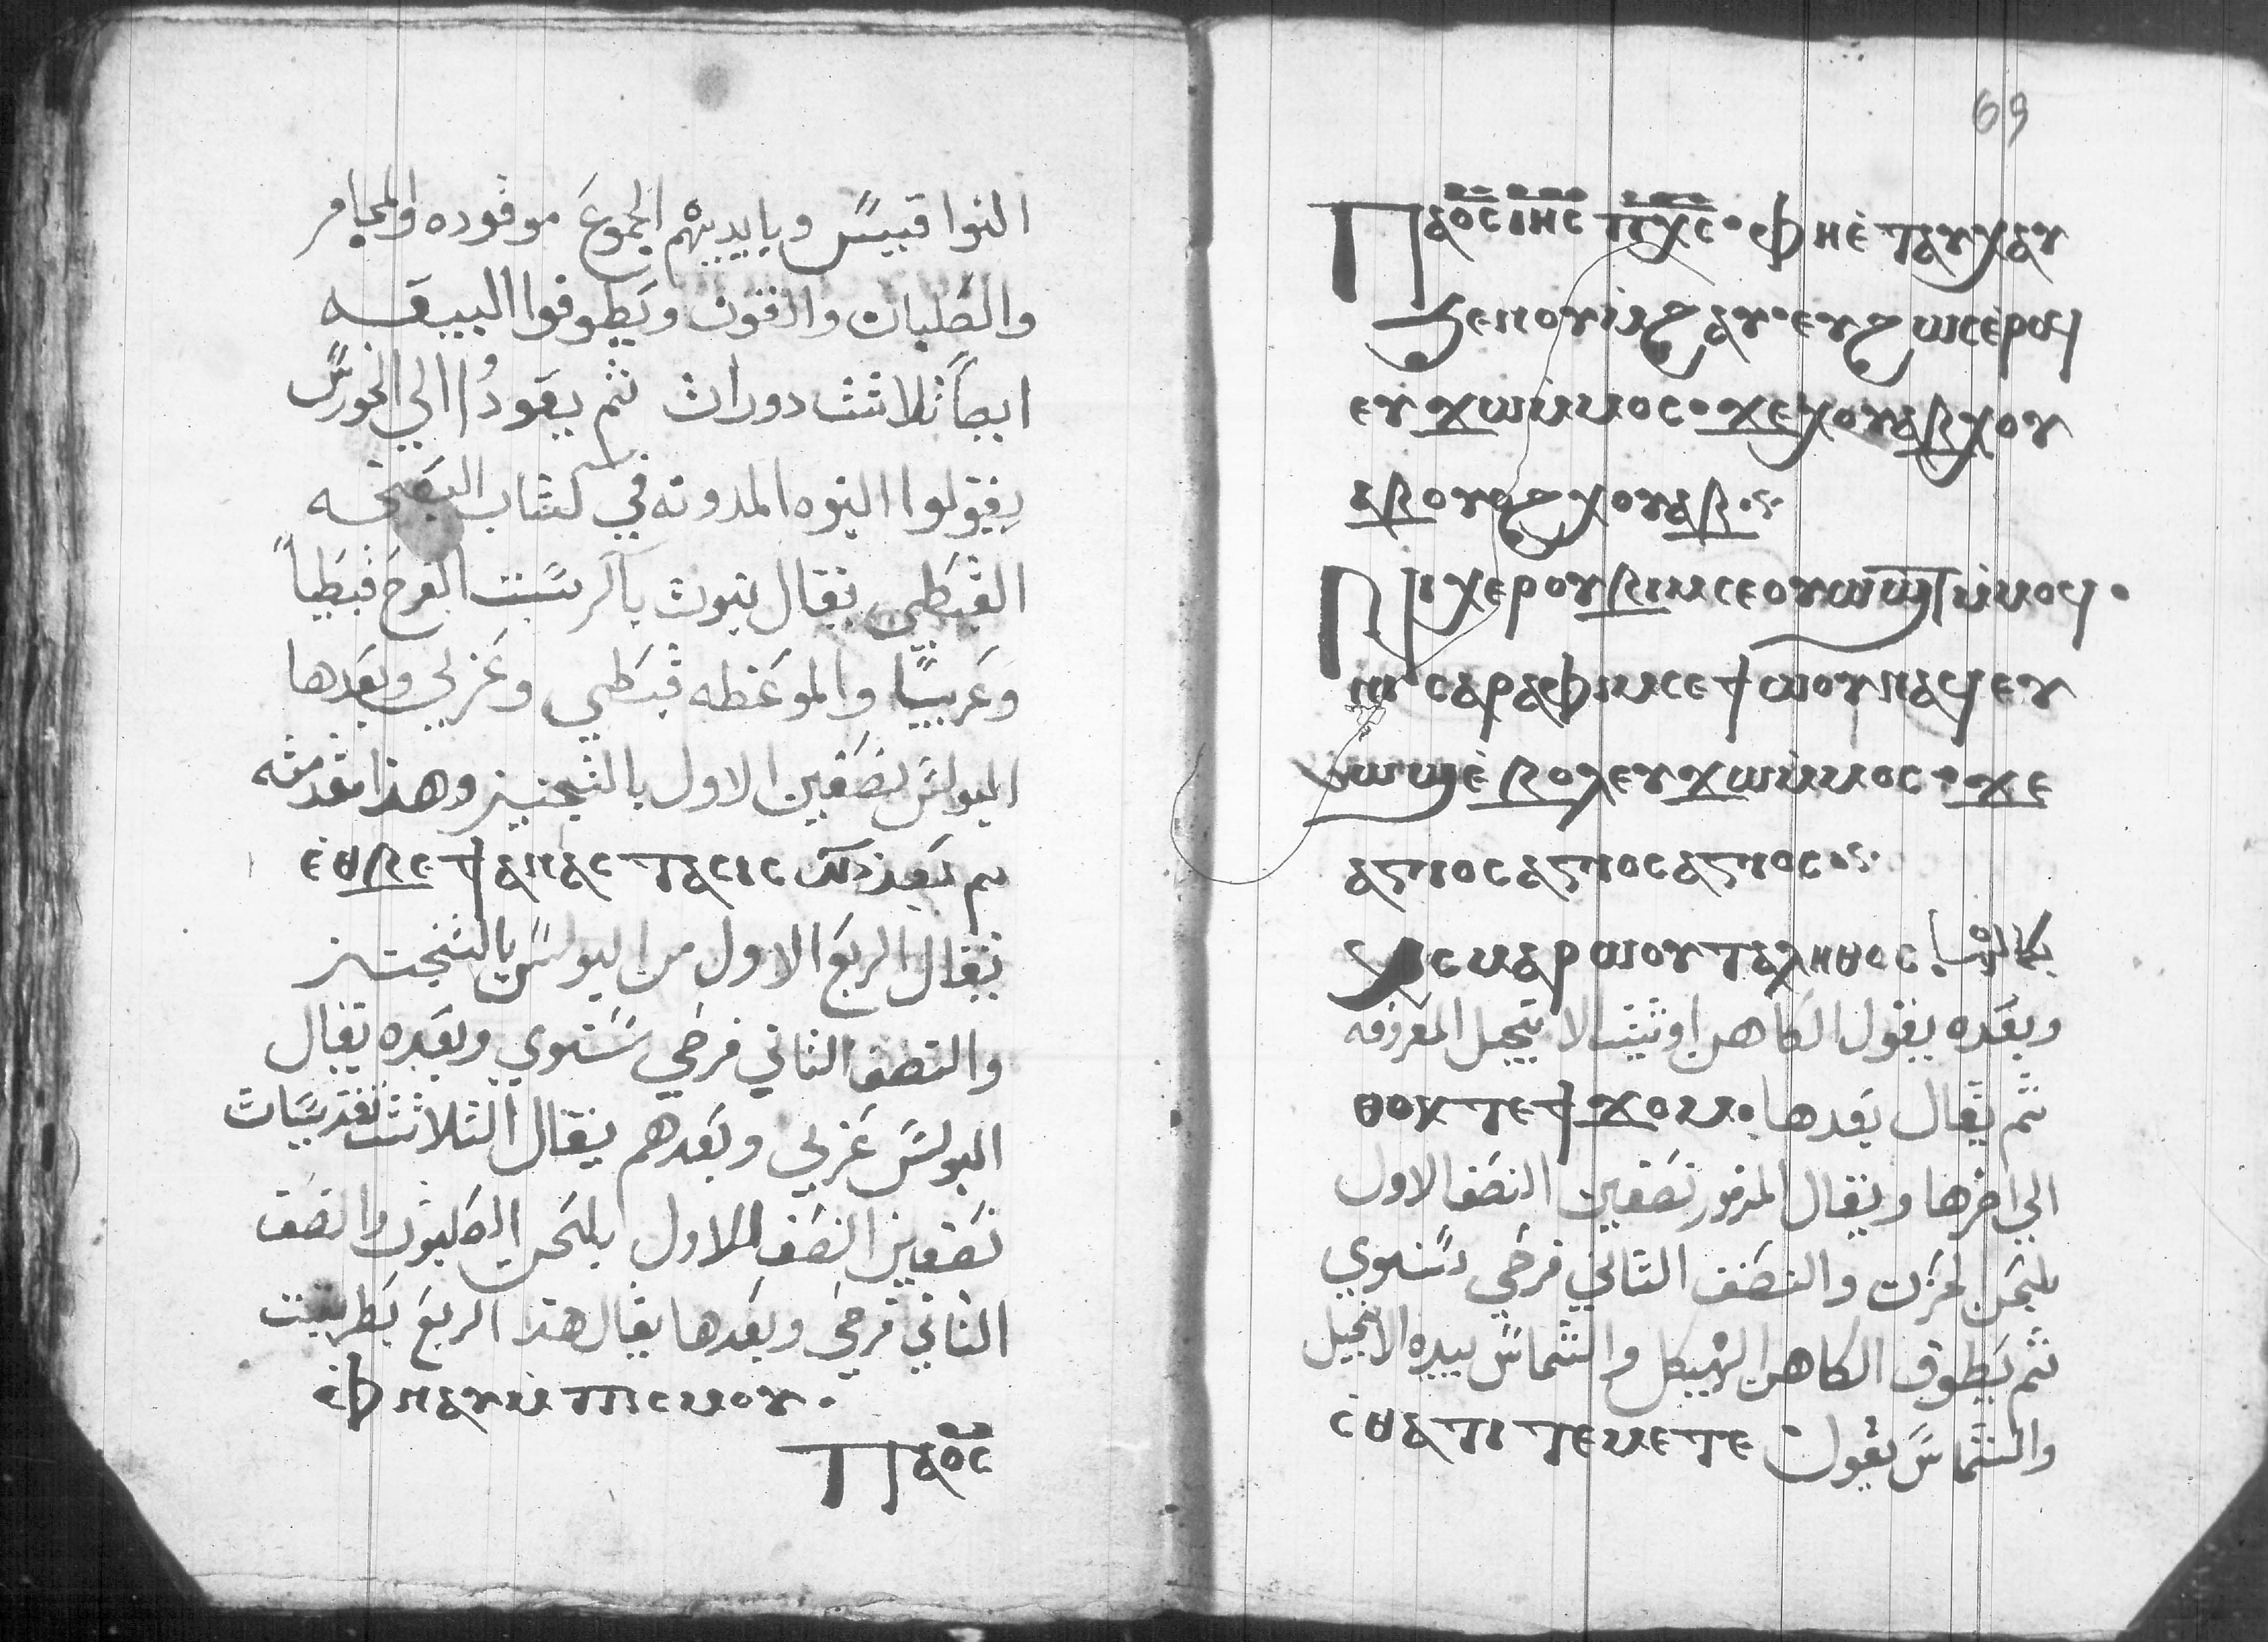 النواقبيس وبايديهم الجموع موقوده والمجامر
والصلبان والاقون ويطوفوا البيعه
ايصاً ثلاثت دورات ثم يعودُا الي الخورس
يقولوا النبوه المدونه في كتاب البصخه
القبطي يقال تبوت بالرست الفرح قبطياً
وعربياً والموعظه قبطي وعربي وبعدها
البولس نصفين الاول بالتجنيز وهذا مقدمته
ⲉ̀ⲑⲃⲉϯⲁⲛⲁⲥⲧⲁⲥⲓⲥ تم بعد ذلك
يقال الربع الاول من البولس بالتجنيز
والنصف الثاني فرحي سنوي وبعده يقال
البولس عربي وبعدهم يقال الثلاثت تقديسات
نصفين النصف الاول بلحن الصلبوت والنصف
الثاني فرحي وبعدها يقال هذا الربع بطريقت
ⲫ̀ⲛⲁⲩⲙ̀ⲡⲓⲥⲙⲟⲩ·
Ⲡⲁⲟ̅ⲥ̅
69
Ⲡⲁⲟ̅ⲥ̅ ⲓⲏ̅ⲥ̅ ⲡⲭ̅ⲥ̅· ⲫⲏⲉ̀ⲧⲁⲩⲭⲁⲩ
ϧⲉⲛⲟⲩⲙ̀ϩⲁⲩ·ⲉⲩϩⲱⲥⲉ̀ⲣⲟϥ
ⲉⲩϫⲱⲙ̀ⲙⲟⲥ·ϫⲉⲭⲟⲩⲁⲃⲭⲟⲩ
ⲁⲃⲟⲩⲟϩⲭⲟⲩⲁⲃ
Ⲛⲓⲭⲉⲣⲟⲩⲃⲓⲙⲥⲉⲟⲩⲱϣⲧⲙ̀ⲙⲟϥ·
ⲛⲓⲥⲁⲣⲁⲫⲓⲙⲥⲉϯⲱⲟⲩⲛⲁϥⲉⲩ
ⲱϣⲉ̀ⲃⲟⲗⲉⲩϫⲱⲙ̀ⲙⲟⲥ·ϫⲉ
ⲁⲅⲓⲟⲥⲁⲅⲓⲟⲥⲁⲅⲓⲟⲥ
ⲭⲥⲙⲁⲣⲱⲟⲩⲧⲁⲗⲏⲑⲟⲥ
وبعده يقول الكاهن اوشيت الانجيل المعروفه
ثم يقال بعدها ⲑⲟⲕⲧⲉϯϫⲟⲙ·
الي اخرها ويقال المزمور نصفين النصف الاول
بلحن الحزن والنصف الثاني فرحي سنوي
ثم يطوف الكاهن الهيكل والشماس بيده الانجيل
والشماس يقول ⲥ̀ⲑⲁⲧⲓⲧⲉⲙⲉⲧⲉ